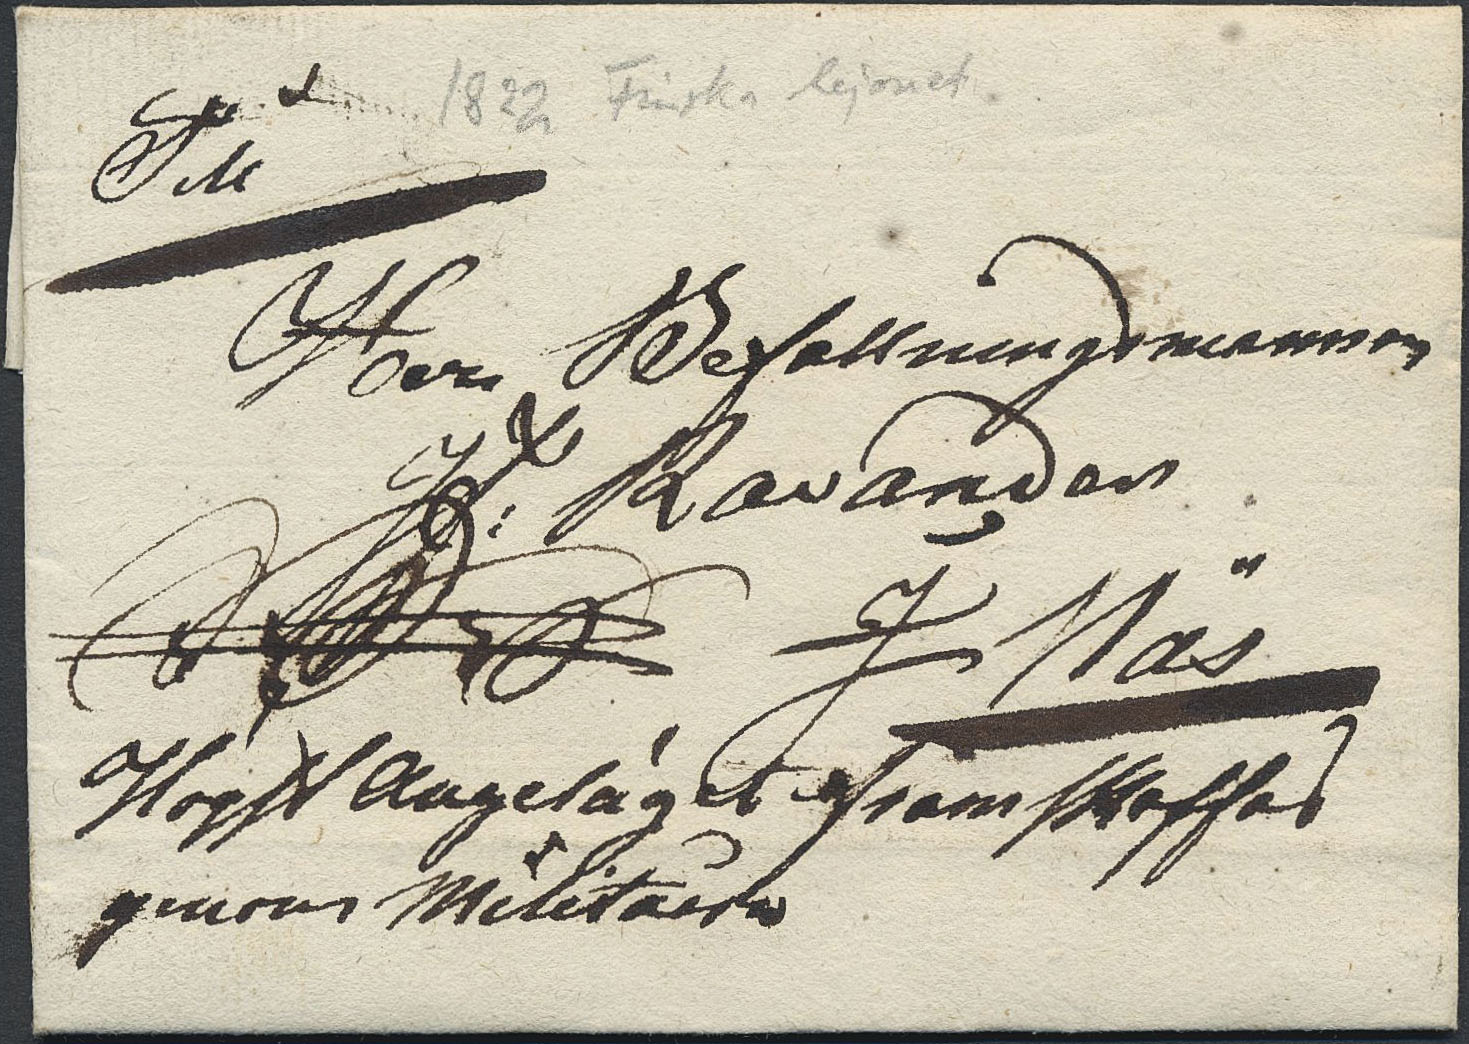 1822 Finska lejonet.
Till
Herr Befallningsmannen
J: Ravander
J Näs
Högst Angeläget framskaffas
genom Militairn